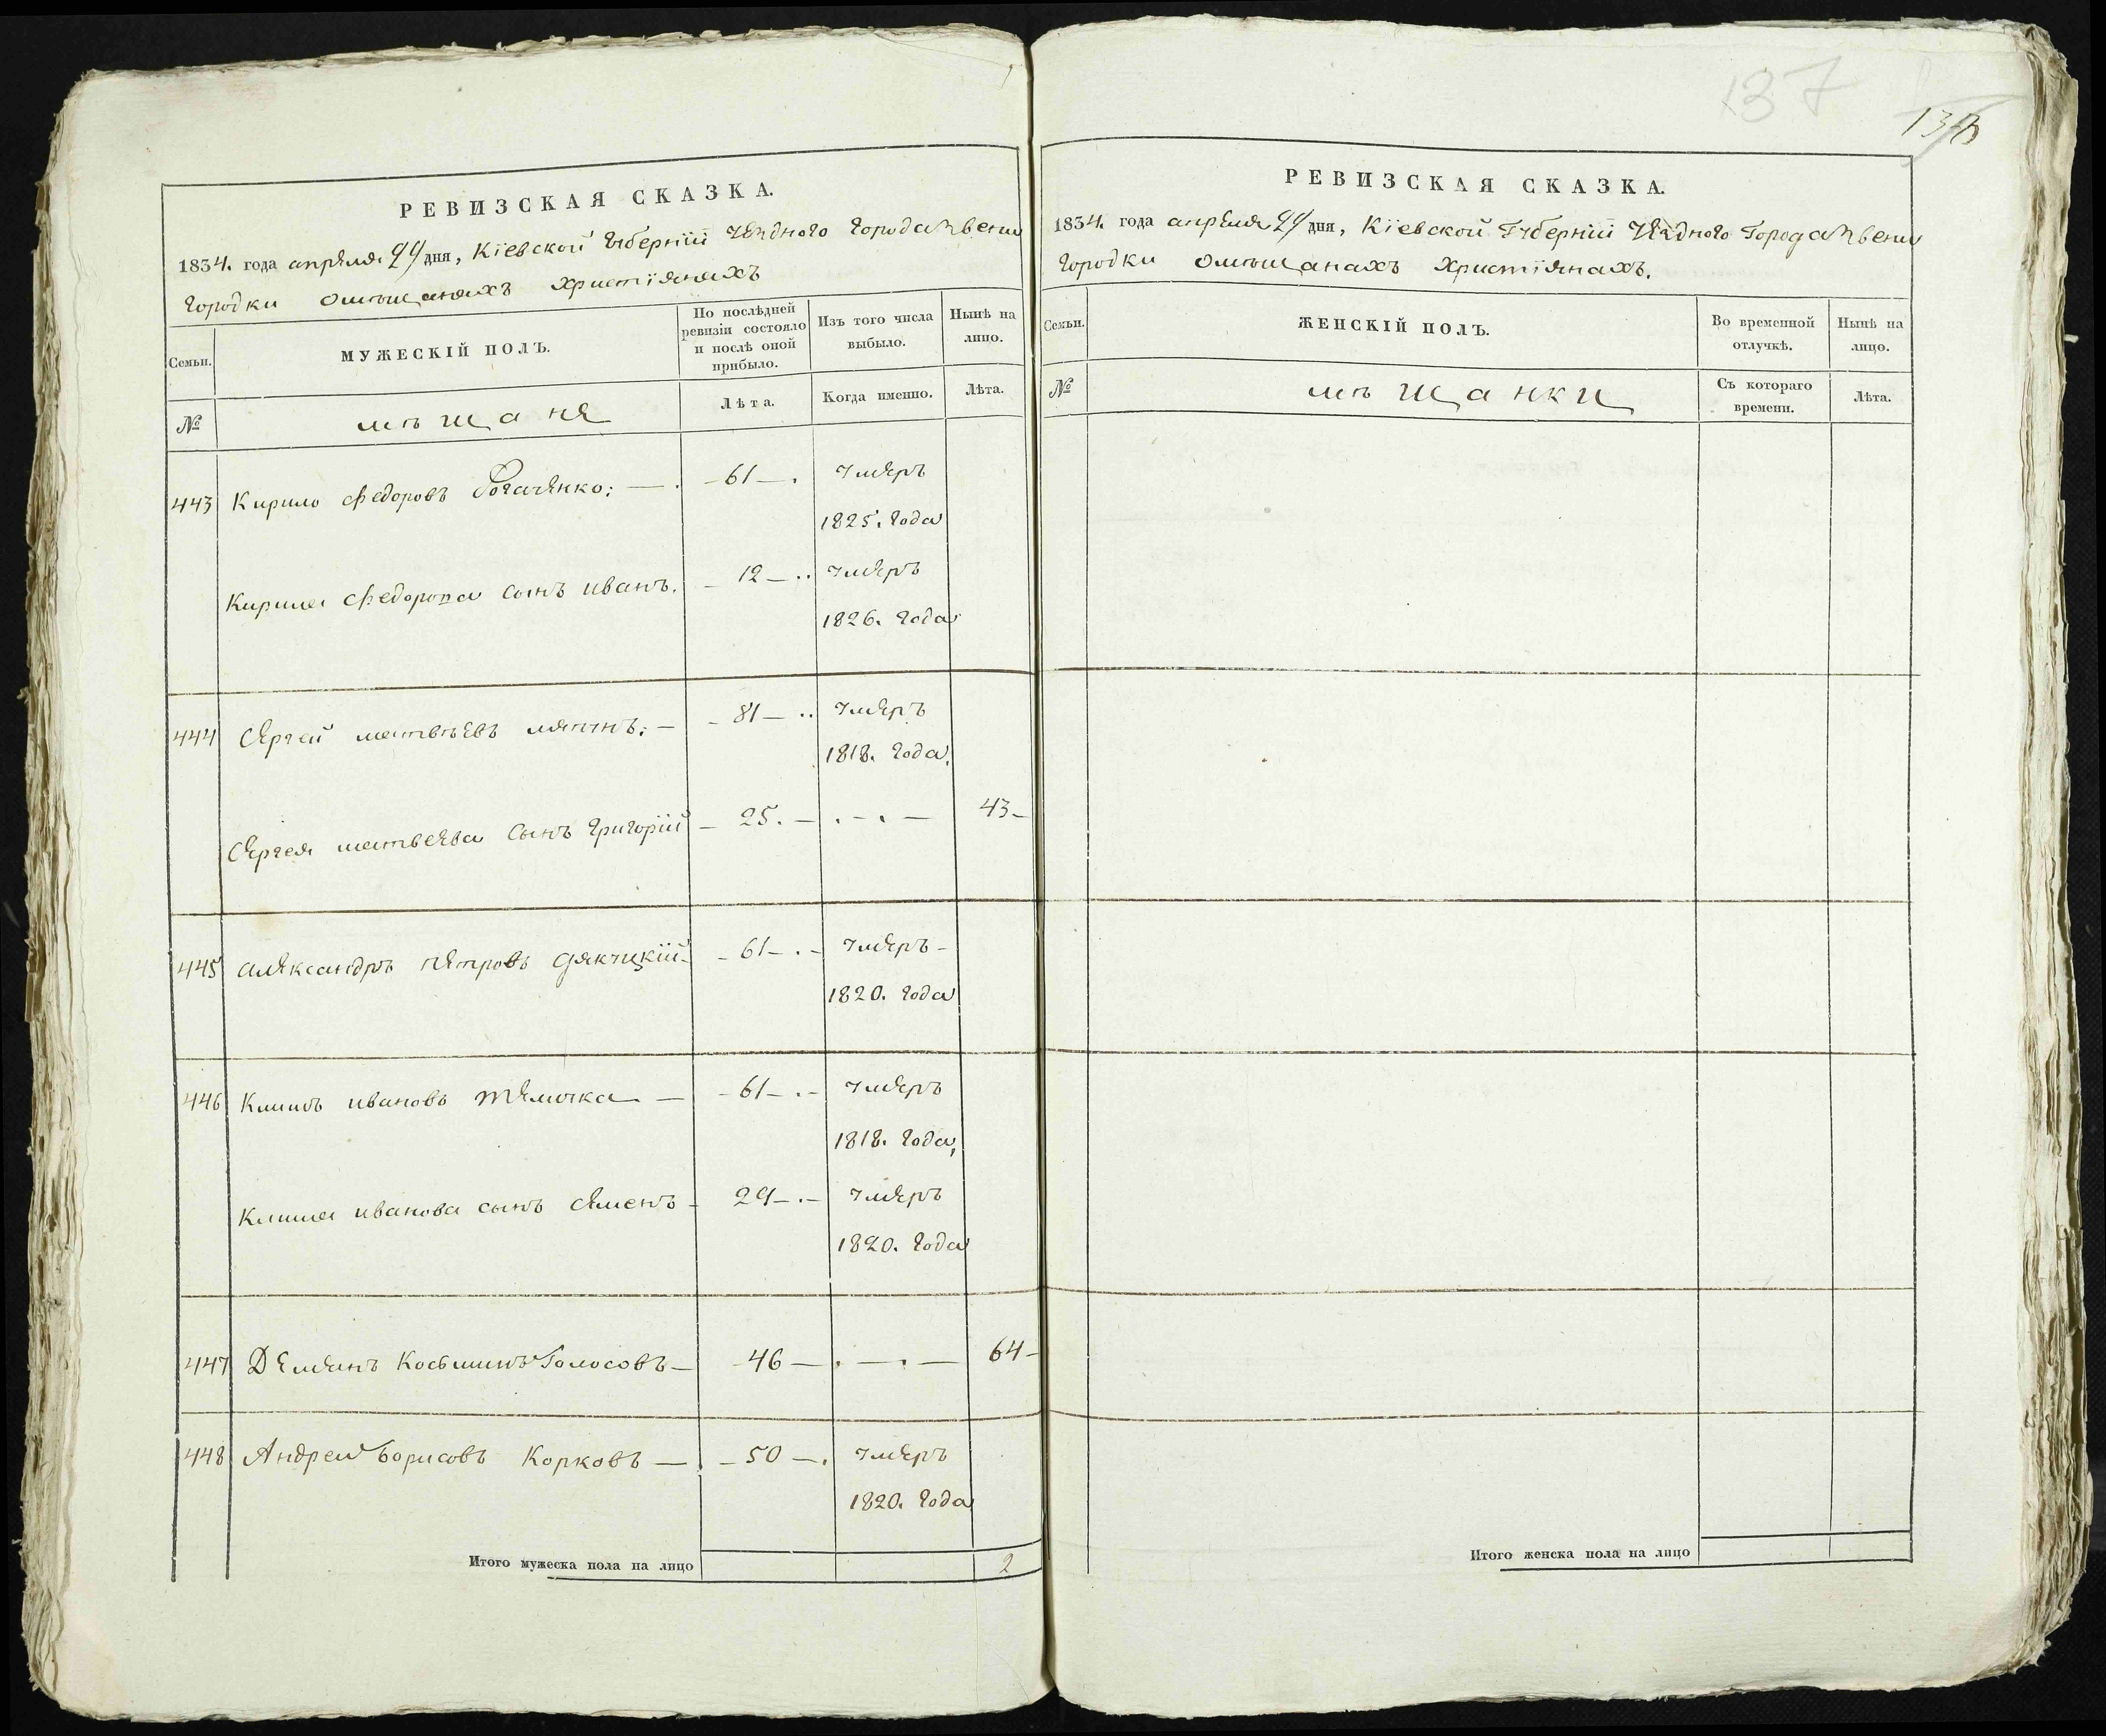 137
РЕВИЗСКАЯ СКАЗКА.
1834. года апреля 29 дня, Кіевской Губерніи Уезднаго города Звени
городки омѣщанахъ христіянахъ
Семьи.
МУЖЕСКІЙ ПОЛЪ.
По послѣдней
ревизіи состояло
и послѣ оной
прибыло.
Изъ того числа
выбыло.
Нынѣ на
лицо.
№
мѣщане
Лѣта.
Когда именно.
Лѣта.
443 Кирило Федоровъ — 61 — умеръ
1825. года
Кирила Федорова сынъ иванъ. — 12 — умеръ
1826. года
444 Сергей матвѣевъ — 81 — умеръ
1818. года
Сергея матвеева сынъ григорій — 25. — . — . — 43 —
445 александръ петровъ — 61 — . — умеръ —
1820. года
446 Климъ ивановъ темочка — 61 — . — умеръ
1818. года
Клима иванова сынъ семенъ — 29 — . — умеръ
1820. года
447 Демянъ Косьминъ Голосовъ — 46 — . — . — 64 —
448 Андрей Борисовъ Корковъ — 50 — . умеръ
1820. года
Итого мужеска пола на лицо 2
РЕВИЗСКАЯ СКАЗКА.
1834. года апреля 29 дня, Кіевской Губерніи Уезднаго Города Звени
городки омѣщанахъ христіянахъ.
Семьи.
ЖЕНСКІЙ ПОЛЪ.
Во временной
отлучкѣ.
Нынѣ на
лицо.
№
мѣщанки
Съ котораго
времени.
Лѣта.
Итого женска пола на лицо